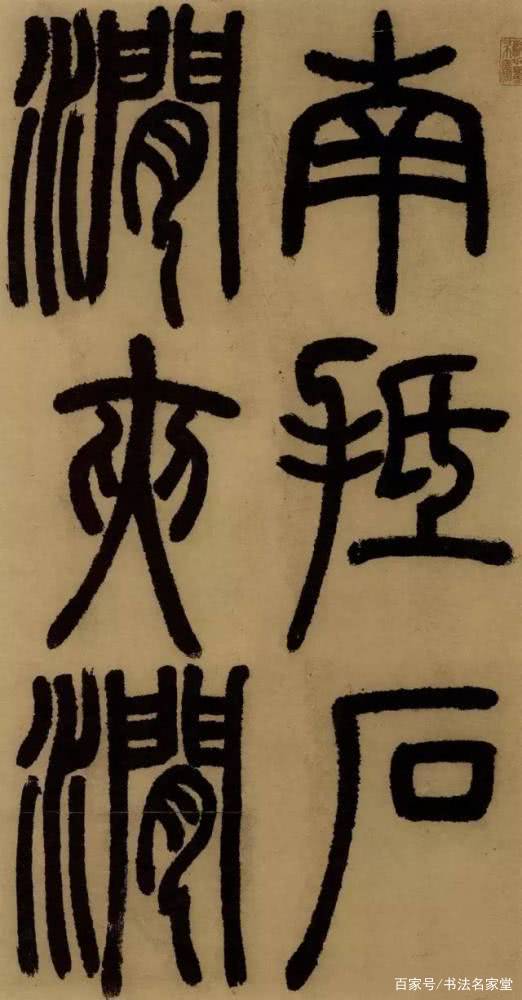 南抵石
澗夾澗
百家号/书法名家堂